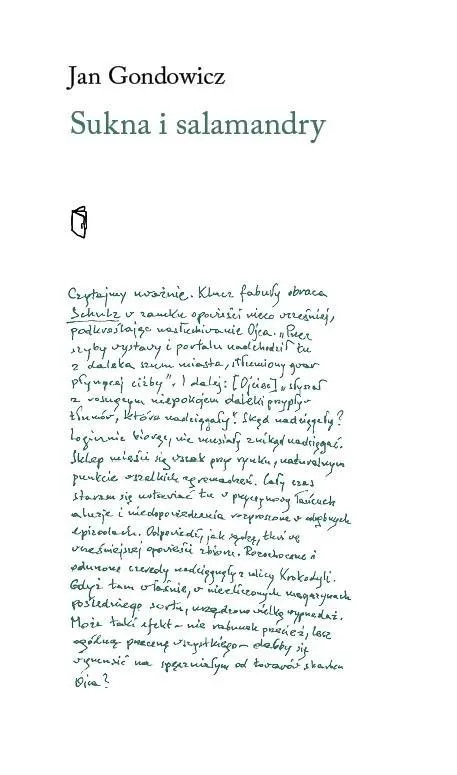 Jan Gondowicz
Sukna i salamandry
Czytajmy uważnie. Klucz fabuły obraca
Schulz w zamku opowieści nieco wcześniej,
podkreślając nasłuchiwanie Ojca. „Przez
szyby wystawy i portalu nadchodził tu
z daleka szum miasta, stłumiony gwar
płynącej ciżby". I dalej: [Ojciec] „słyszał
z rosnącym niepokojem daleki przypływ
tłumów, które nadciągały". Skąd nadciągały?
Logicznie biorąc, nie musiały znikąd nadciągać.
Sklep mieści się wszak przy rynku, naturalnym
punkcie wszelkich zgromadzeń. Cały czas
staram się wstawiać tu w przyczynowy łańcuch
aluzje i niedopowiedzenia rozproszone w odrębnych
epizodach. Odpowiedź, jak sądzę, tkwi we
wcześniejszej opowieści zbioru. Rozochocone i
odurzone czeredy nadciągnęły z ulicy Krokodyli.
Gdyż tam właśnie, w niezliczonych magazynach
pośledniego sortu, urządzono wielką wyprzedaż.
Może taki efekt – nie rabunek przecież, lecz
ogólną przecenę wszystkiego – dałoby się
wymusić na spęczniałym od towarów skarbcu
Ojca?